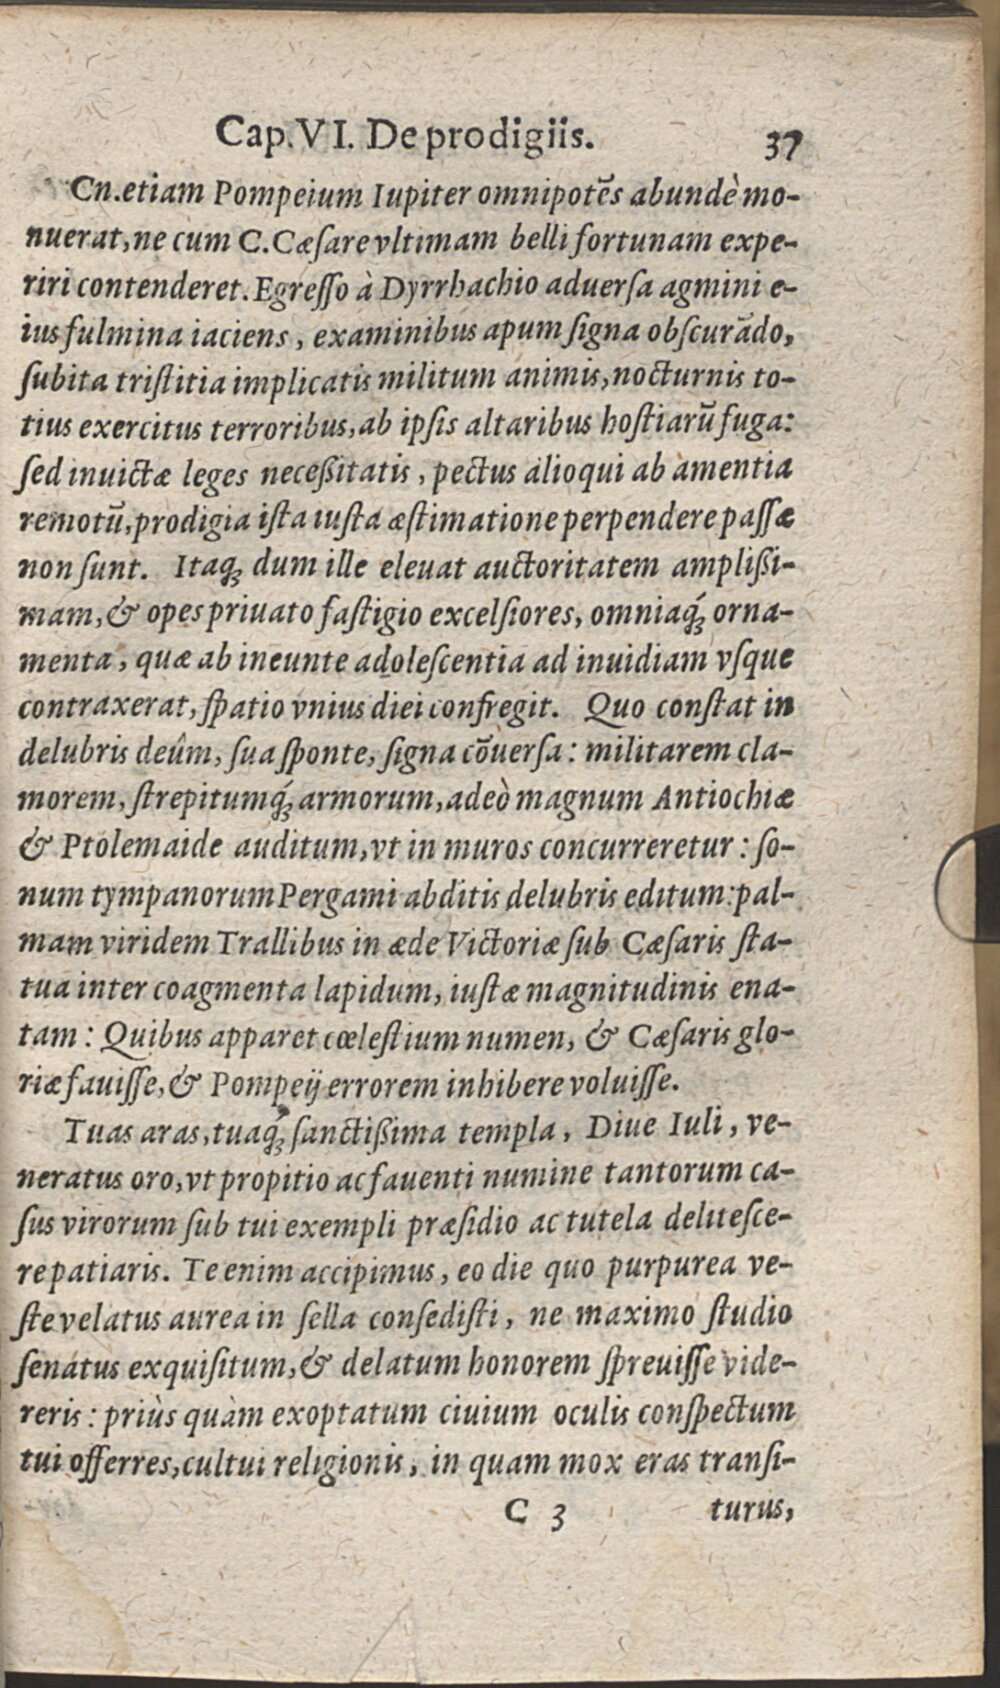 Cap. VI. De prodigiis. 37
Cn. etiam Pompeium Iupiter omnipotẽs abundè mo-
nuerat, ne cum C. Cæſare vltimam belli fortunam expe-
riri contenderet. Egreſſo à Dyrrhachio aduerſa agmini e-
ius fulmina iaciens, examinibus apum ſigna obſcurãdo,
ſubita triſtitia implicatis militum animis, nocturnis to-
tius exercitus terroribus, ab ipſis altaribus hoſtiarũ fuga:
ſed inuictæ leges neceßitatis, pectus alioqui ab amentia
remotũ, prodigia iſta iuſta æſtimatione perpendere paſſæ
non ſunt. Itaq́; dum ille eleuat auctoritatem ampliſſi-
mam, & opes priuato faſtigio excelſiores, omniaq́; orna-
menta, quæ ab ineunte adoleſcentia ad inuidiam vſque
contraxerat, ſpatio vnius diei confregit. Quo conſtat in
delubris deûm, ſua ſponte, ſigna cõuerſa: militarem cla-
morem, ſtrepitumq́; armorum, adeò magnum Antiochiæ
& Ptolemaide auditum, vt in muros concurreretur: ſo-
num tympanorum Pergami abditis delubris editum: pal-
mam viridem Trallibus in æde Victoriæ ſub Cæſaris ſta-
tua inter coagmenta lapidum, iuſtæ magnitudinis ena-
tam: Quibus apparet cœleſtium numen, & Cæſaris glo-
riæ fauiſſe, & Pompeij errorem inhibere voluiſſe.
Tuas aras, tuaq́; ſanctißima templa, Diue Iuli, ve-
neratus oro, vt propitio ac fauenti numine tantorum ca-
ſus virorum ſub tui exempli præſidio ac tutela deliteſce-
re patiaris. Te enim accipimus, eo die quo purpurea ve-
ſte velatus aurea in ſella conſediſti, ne maximo ſtudio
ſenatus exquiſitum, & delatum honorem ſpreuiſſe vide-
reris: priùs quàm exoptatum ciuium oculis conſpectum
tui offerres, cultui religionis, in quam mox eras tranſi-
C 3 turus,